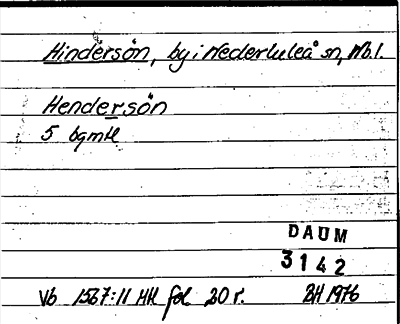 Hindersön, by i Nederluleå sn, Nb.l.
Hendersön
5 bgmtl
DAUM
3142
Vb 1567:11 HH fol 20 r. BH 1976